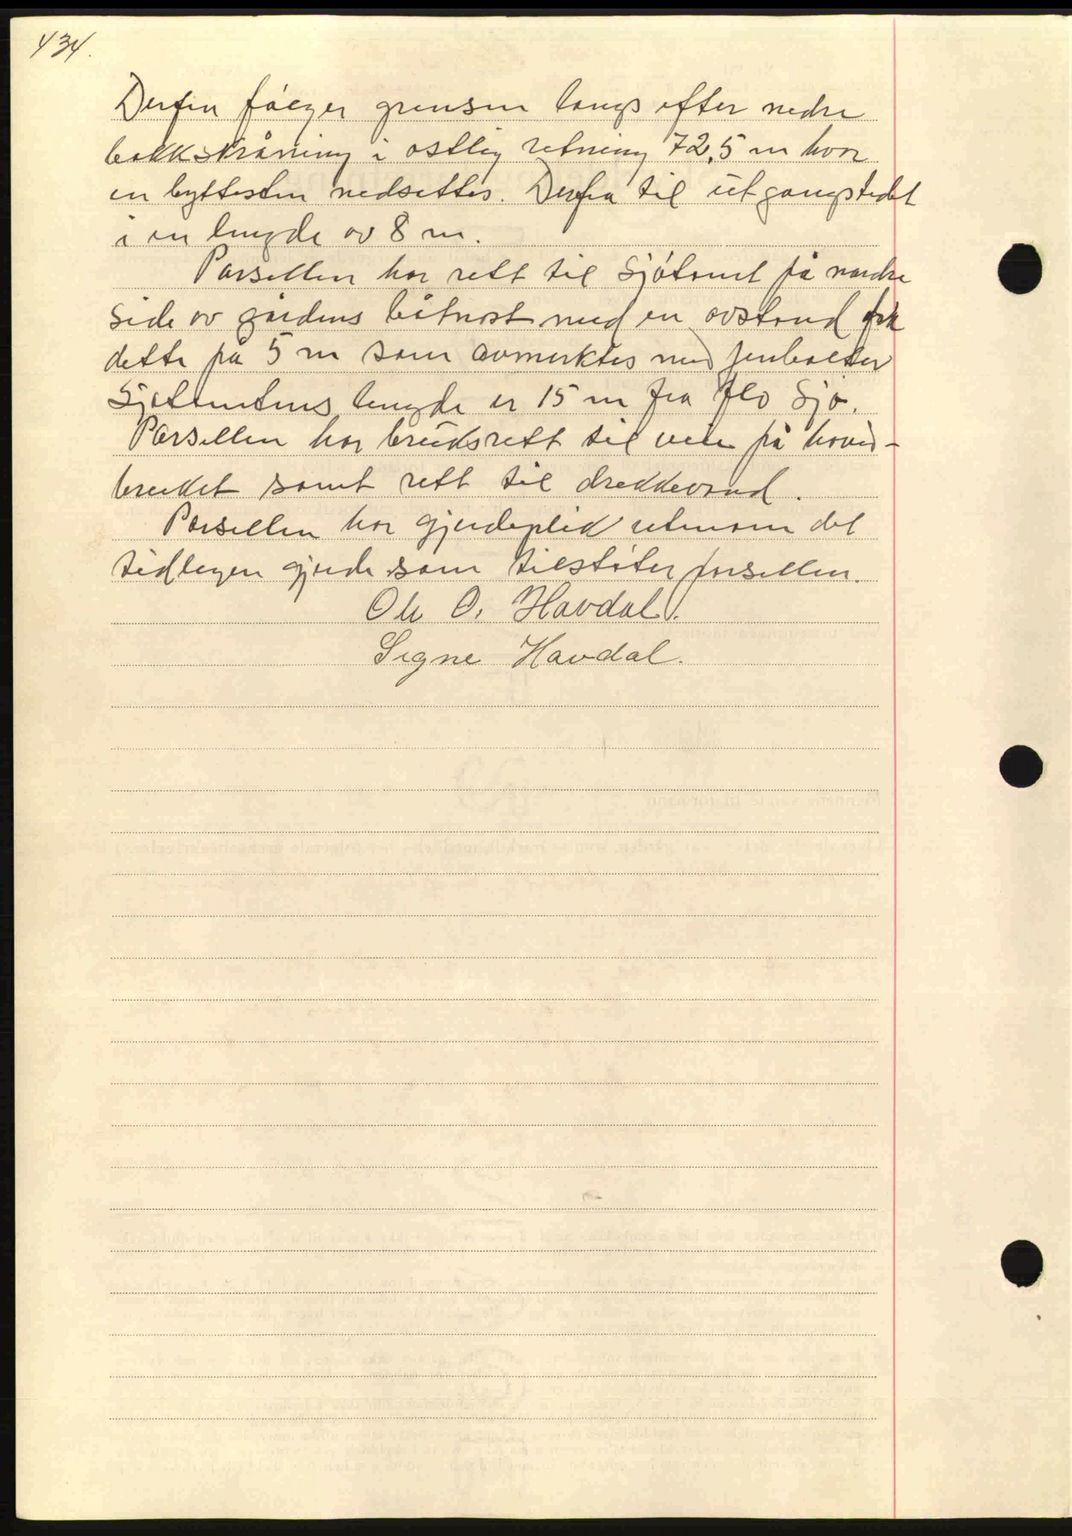 434.
Derfra følger grensen langs efter nedre
bakkskråning i ostlig retning 72,5 m hvor
en byttesten nedsettes. Derfra til utgangstedet
i en lengde av 8 m.
Parsellen har rett til sjøtomt på nordre
side av gårdens båtnost med en avstand fra
dette på 5 m som avmerktes med jernbolter
Sjøtomtens lengde er 15 m fra flo sjø.
Parsellen har bruksrett til veien på hoved-
bruket samt rett til drekkevand.
Parsellen har gjerdeplikt utenom det
tidligere gjerde som tilstøter parsellen.
Ole O. Havdal.
Signe Havdal.